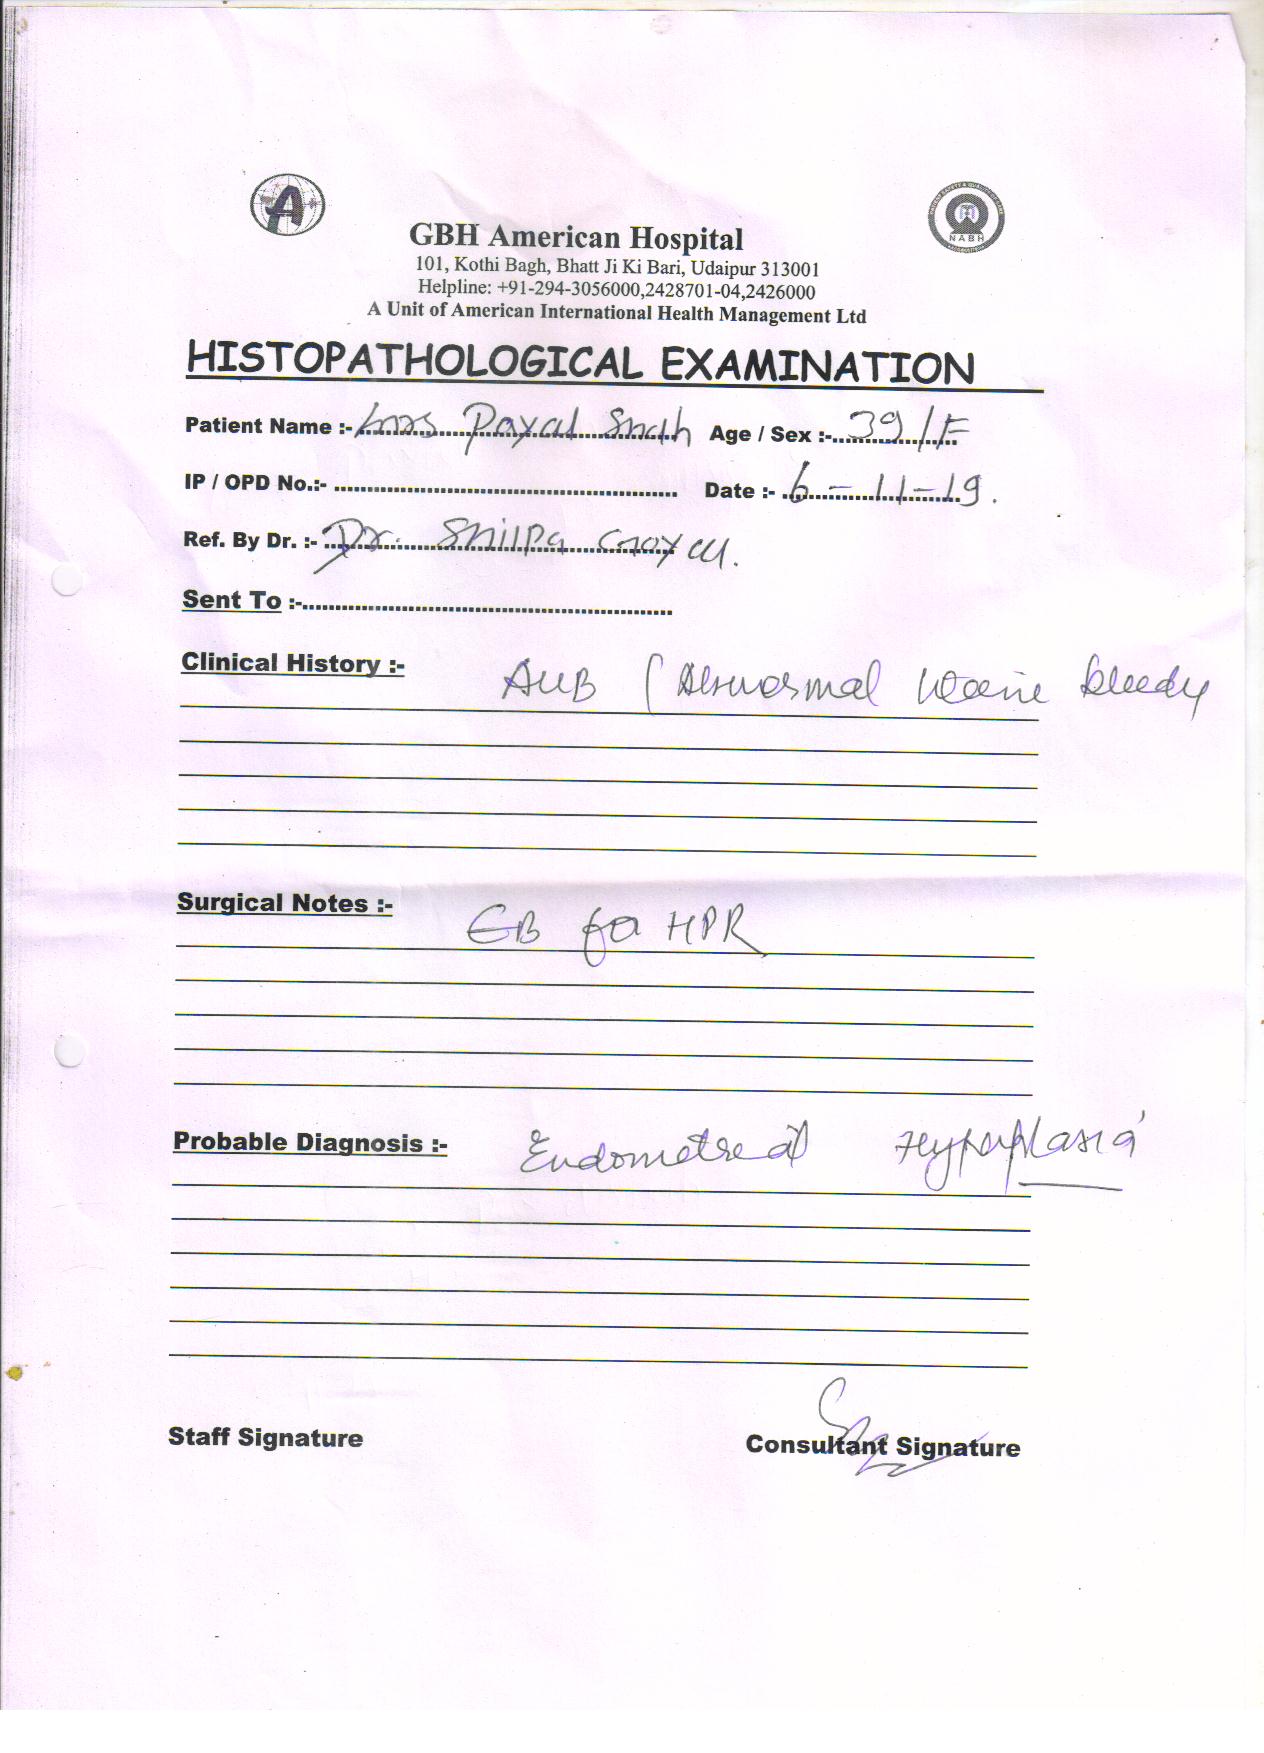 A
NABH
GBH American Hospital
101, Kothi Bagh, Bhatt Ji Ki Bari, Udaipur 313001
Helpline: +91-294-3056000,2428701-04,2426000
A Unit of American International Health Management Ltd
HISTOPATHOLOGICAL EXAMINATION
Patient Name :- Mrs Payal Age / Sex :- 39/F
IP / OPD No.:- Date :- 6-11-19.
Ref. By Dr. :- Dr. Shilpa Goyal.
Sent To :-
Clinical History :- AUB ( Abnormal
Surgical Notes :- EB for HPR
Probable Diagnosis :- Endometreal Hyperplasia
Staff Signature Consultant Signature